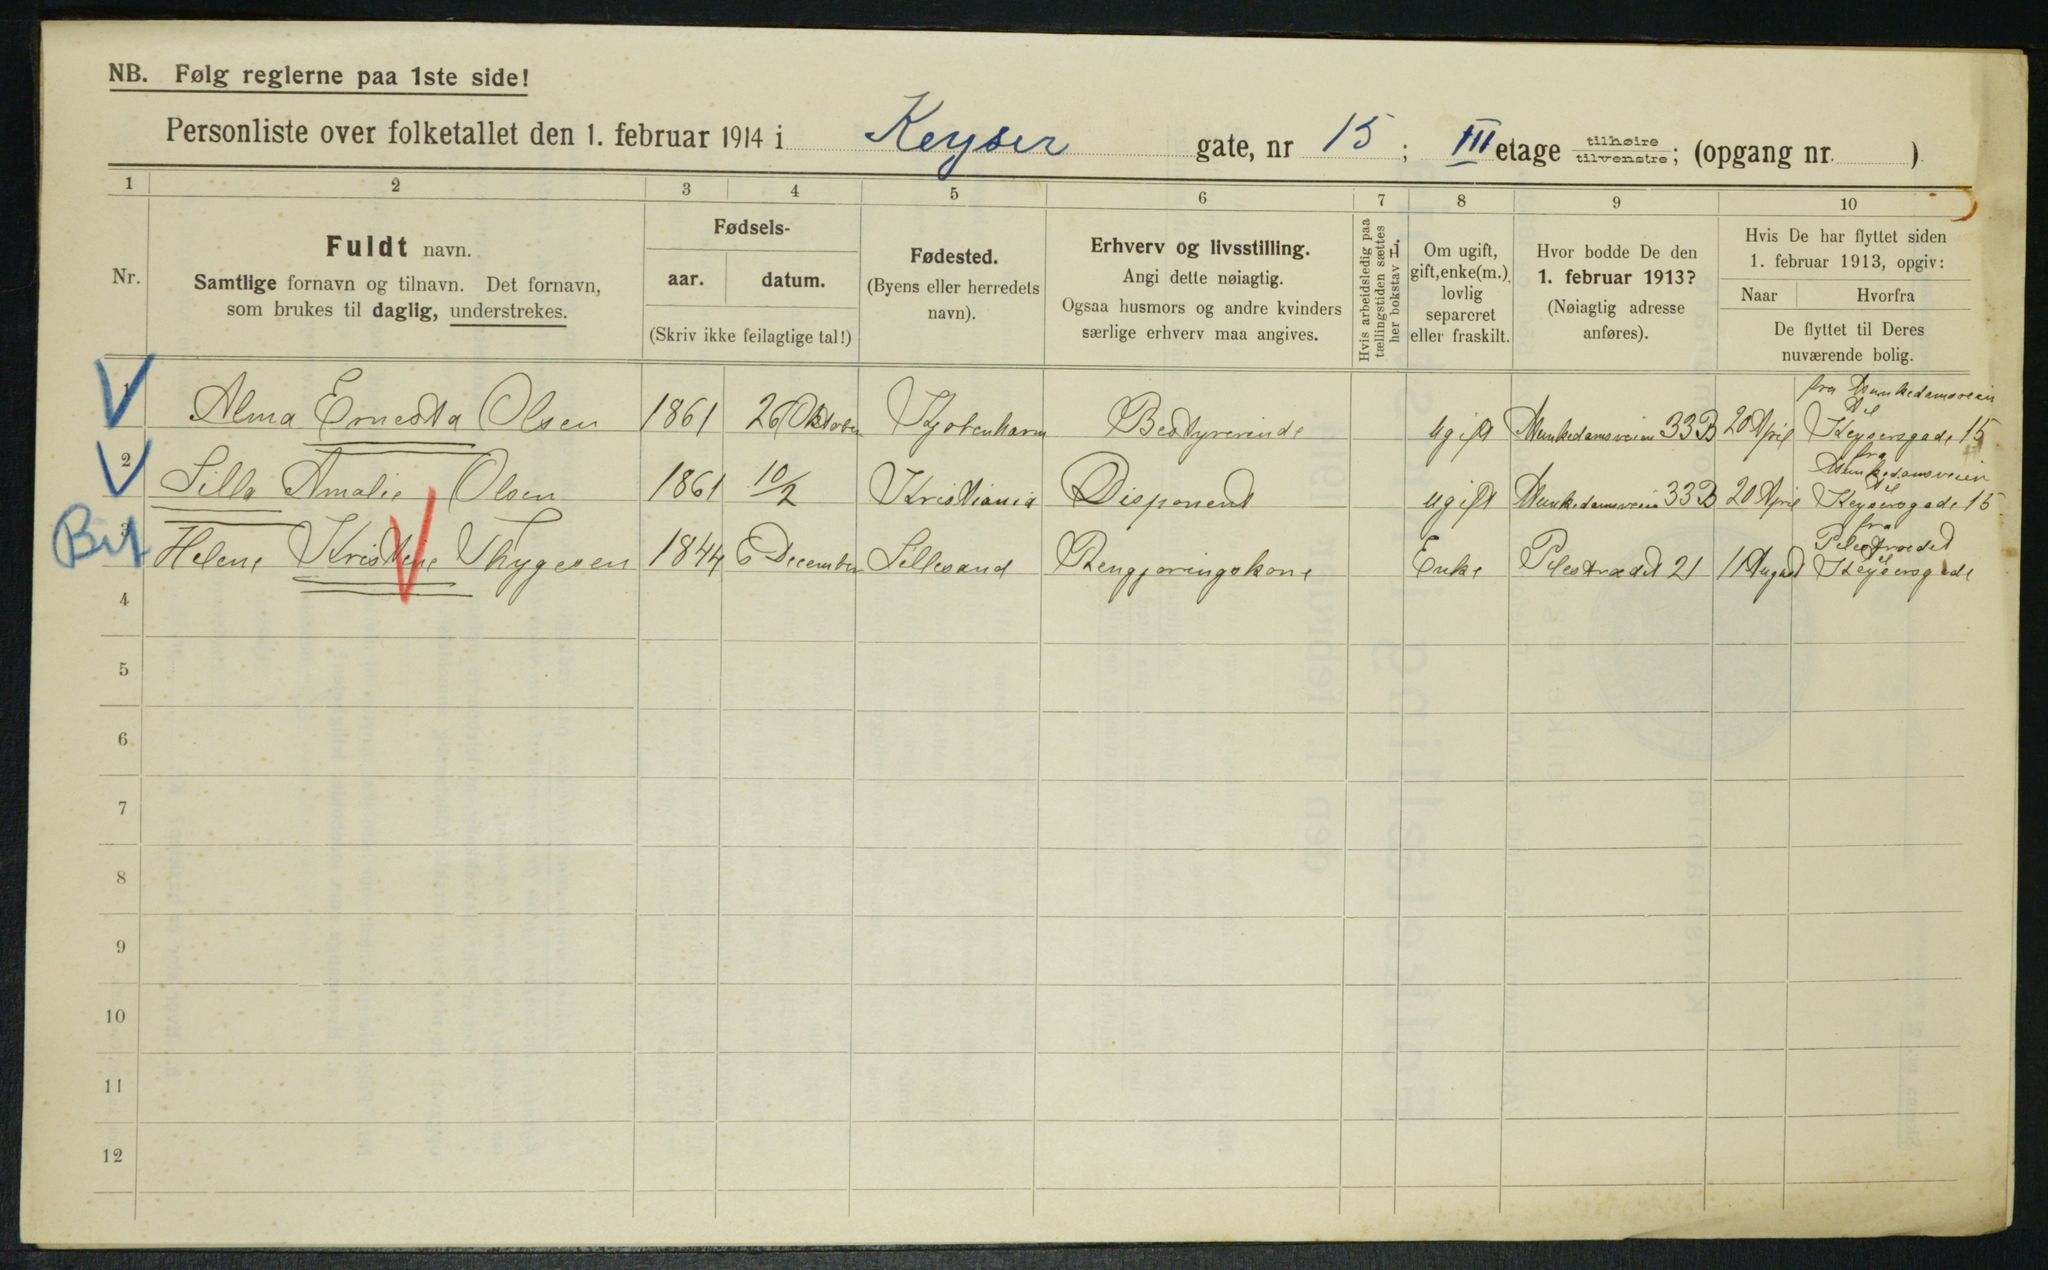 NB. Følg reglerne paa 1ste side!
Personliste over folketallet den 1. februar 1914 i Keyser gate, nr 15; III etage tilhøire tilvenstre; (opgang nr. )
1 2 3 4 5 6 7 8 9 10
Nr.
Fuldt navn.
Samtlige fornavn og tilnavn. Det fornavn,
som brukes til daglig, understrekes.
Fødsels-
aar. datum.
(Skriv ikke feilagtige tal!)
Fødested.
(Byens eller herredets
navn).
Erhverv og livsstilling.
Angi dette nøiagtig.
Ogsaa husmors og andre kvinders
særlige erhverv maa angives.
Hvis arbeidsledig paa
tællingstiden sættes
her bokstav L.
Om ugift,
gift, enke(m.),
lovlig
separeret
eller fraskilt.
Hvor bodde De den
1. februar 1913?
(Nøiagtig adresse
anføres).
Hvis De har flyttet siden
1. februar 1913, opgiv:
Naar Hvorfra
De flyttet til Deres
nuværende bolig.
fra Munkedamsveien
til
1 Alma Ernesta Olsen 1861 26 Oktober Kjøbenhavn Bestyrerinde ugift Munkedamsveien 33B 20 April Keysersgade 15
fra
Munkedamsveien
til
2 Silla Amalie Olsen 1861 10/2 Kristiania Disponent ugift Munkedamsveien 33B 20 April Keysersgade 15
fra
Pilestrædet
til
Bit 3 Helene Kristine Thygesen 1844 6 December Lillesand Rengjøringskone Enke Pilestrædet 21 1 August Keysersgade
4
5
6
7
8
9
10
11
12